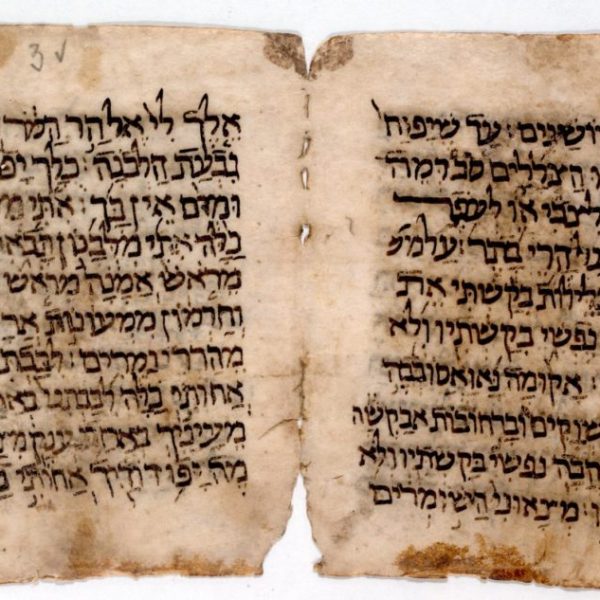 3 ✓
ושינים: עד שיפוח
הצללים סב דמה
לצבי או לעפר
הרי בתר: על מש
לילות בקשתי את
נפשי בקשתיו ולא
: אקומה נא ואסובבה
שוקים וברחובות אבקשה
הבה נפשי בקשתיו ולא
: מצאוני השומרים
אלך לי אל הר המור
גבעת הלבנה: כלך יפ
ומום אין בך: אתי מ
כלה אתי מלבנון תבוא
מראש אמנה מראש
וחרמון ממעונות אר
מהררי נמרים: לבבת
אחותי כלה לבבתני בא
מעיניך באחד ענק מצ
מה יפו דודיך אחותי כ